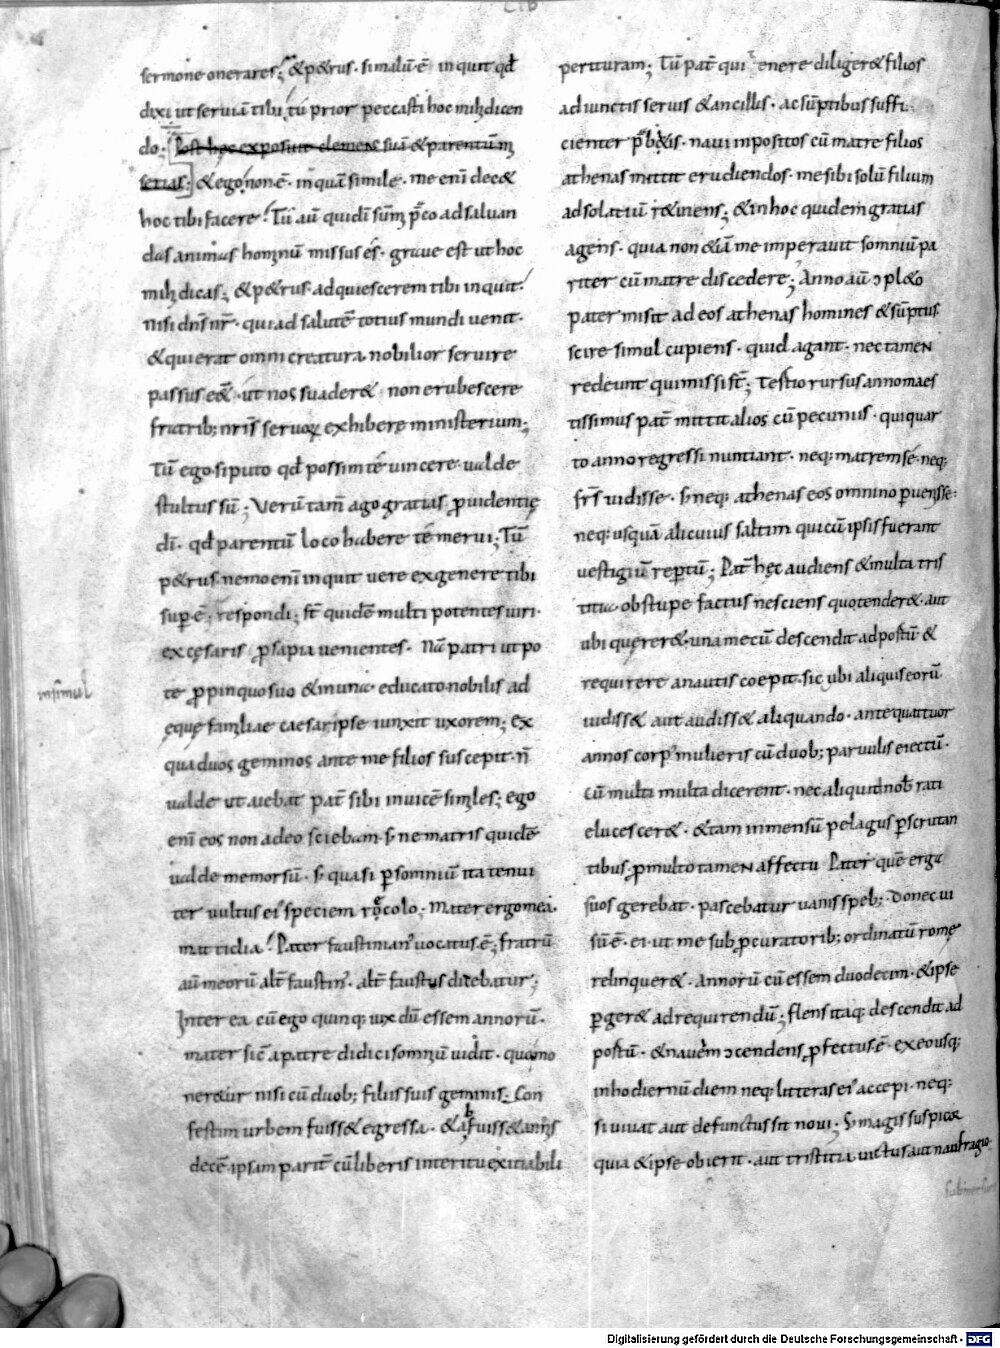 LIB
sermone onerares; & petrus· si malū ē inquit qd
dixi ut seruiā tibi, tu prior peccasti hoc mihi dicen
do· Post hęc exposuit clemens suā & parentum m
serias; & ego non ē· inquā simile· me enī dec&
hoc tibi facere; Tū aū quidī sum̄ p̄co ad saluan
das animas hominū missus es· graue est ut hoc
mihi dicas; & petrus· adquiescerem tibi inquit
nisi dn̄s nr̄· qui ad salutē totius mundi uenit·
& qui erat omni creatura nobilior seruire
passus eēt· ut nos suader& non erubescere
fratrib; nr̄is seruoꝝ exhibere ministerium;
Tū ego· si puto qd possim te uincere ualde
stultus sū; Verū tam̄ ago gratias ꝓuidentię
dī· qd parentū loco habere te merui; Tū
petrus· nemo enī inquit uere ex genere tibi
sup ē; respondi; sī quidē multi potentes uiri·
ex cęsaris ꝓsapia uenientes· Nā patri utpo
te ꝓpinquo suo & munu· educato nobilis ad
ęque familiae caesar ipse iunxit uxorem; ex
qua duos geminos ante me filios suscepit· n̄
ualde ut aiebat pat̄ sibi inuicē similes; ego
enī eos non adeo sciebam· s; ne matris quidē
ualde memor sū· s; quasi ꝑ somniū ita tenui
ter uultus ei' speciem recolo· Mater ergo mea·
mattidia; Pater faustinian' uocatus ē; fratrū
aū meorū alt̄ faustin'· alt̄ faustus dicebatur;
Interea cū ego quinq; uix dū essem annorū·
mater sic̄ a patre didici somniū uidit· quo mo
neretur nisi cū duob; filiis suis geminis· Con
festim urbem fuisset egressa· & abfuisset annis
decē ipsam parit̄ cū liberis interitu exitiabili
perituram; Tū pat̄ qui tenere diligeret filios
adiunctis seruis & ancillis· ac sūptibus suffi
cienter p̄bitis· naui inpositos cū matre filios
athenas mittit erudiendos· me sibi solū filium
ad solatiū retinens; & in hoc quidem gratias
agens· quia non & iā me imperauit somniū pa
riter cū matre discedere; Anno aū ɔpleto
pater misit ad eos athenas homines & sūptus·
scire simul cupiens· quid agant· nec tamen
redeunt qui missi st̄; Tertio rursus anno maes
tissimus pat̄ mittit alios cū pecuniis· qui quar
to anno regressi nuntiant· neq; matrem se· neq;
fr̄s uidisse· s; neq; athenas eos omnino ꝑuenisse·
neq; usquā alicuius saltim qui cū ipsis fuerant
uestigiū rep̄tū; Pat̄ hęc audiens & multa tris
titia obstupefactus nesciens quo tenderet· aut
ubi quereret· una mecū descendit ad postū &
requirere a nautis coepit· sic ubi aliquis eorū
uidisset aut audisset aliquando· ante quattuor
annos corp' mulieris cū duob; paruulis eiectū·
Cū multi multa dicerent· nec aliquid nob̄ rati
elucesceret· & tam inmensū pelagus ꝑscrutan
tibus· ꝓ multo tamen affectu Pater quē erga
suos gerebat· pascebatur uanis speb;· Donec ui
sū ē· ei· ut me sub ꝓcuratorib; ordinatū romę
relinqueret· Annorū cū essem duodecim· & ipse
ꝑgeret ad requirendū; flens itaq; descendit ad
postū· & nauem ɔcendens ꝓfectus ē· ex eo usq;
in hodiernū diem neq; litteras ei' accepi· neq;
si uiuat aut defunctus sit noui; S; magis suspicor
quia & ipse obierit· aut tristitia uictus aut naufragio·
submersus
insimul
Digitalisierung gefördert durch die Deutsche Forschungsgemeinschaft · DFG